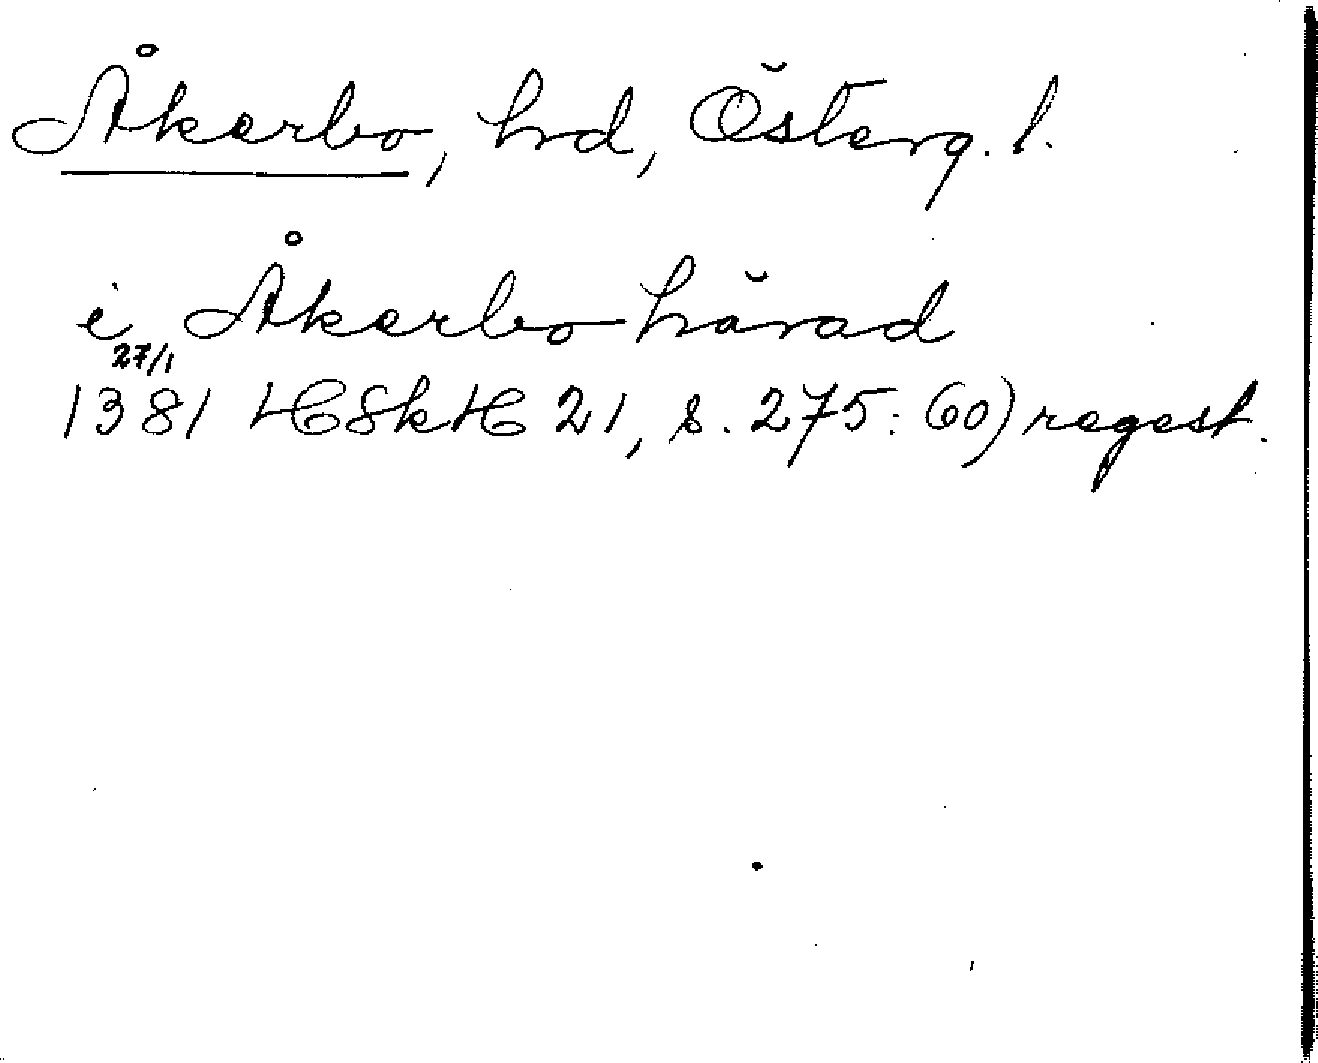 Åkerbo, hd, Österg. l.
i Åkerbo härad
27/1
1381 HSkH 21, s. 275: (60) regest.